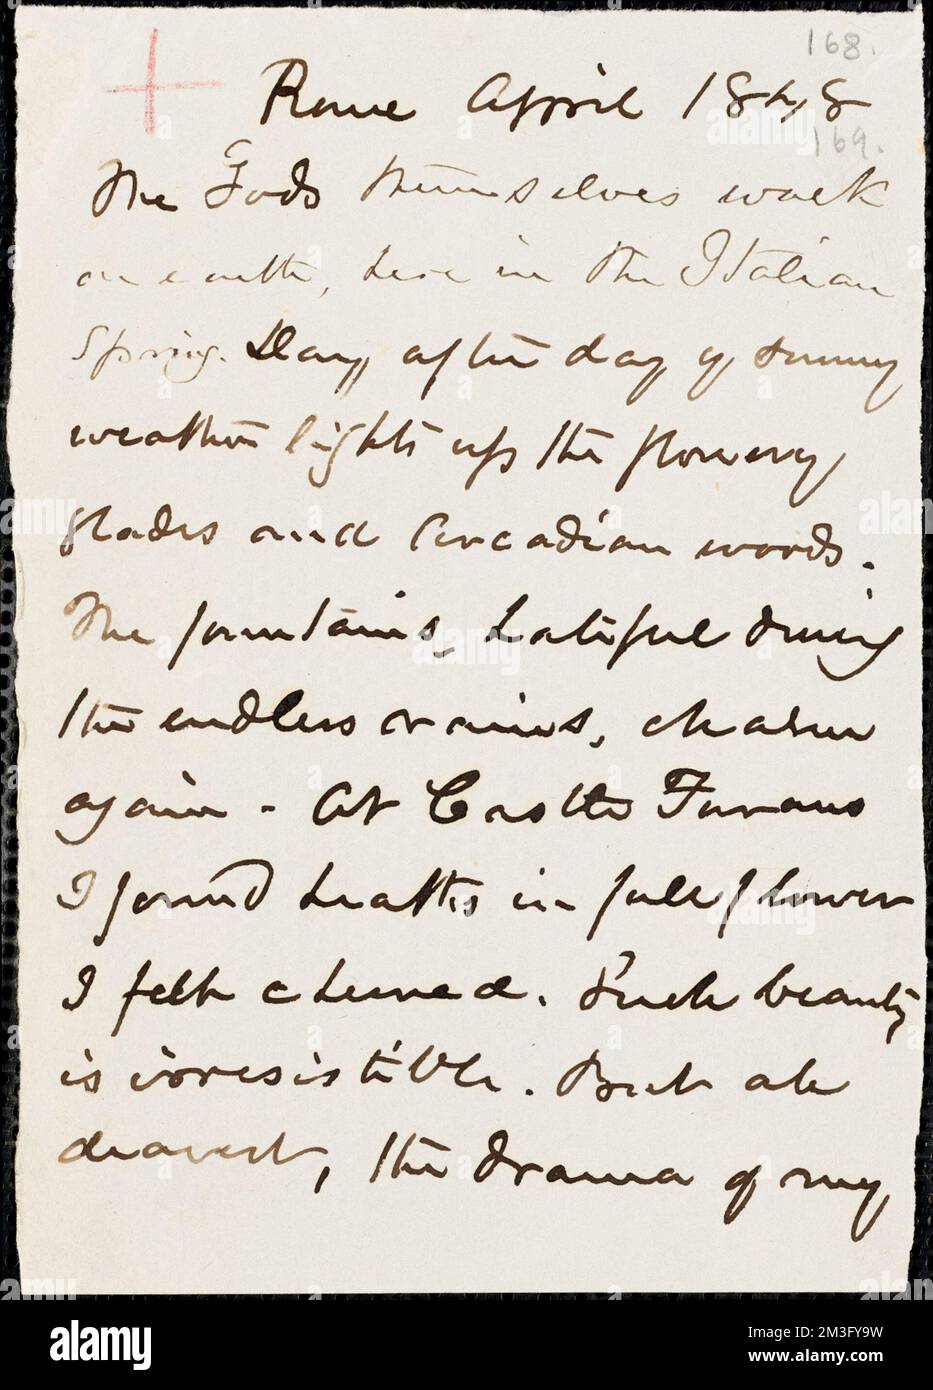 168.
Rome April 1848
169.
The Gods themselves walk
on earth, here in the Italian
Spring. Day after day of sunny
weather lights up the flowery
glades and Arcadian woods.
The fountains, hateful during
the endless rains, charm
again - At Castle Fusano
I found heaths in full flower
I felt cheered. Such beauty
is irresistible. But ah
dearest, the drama of my
alamy
Image ID: 2M3FY9W
www.alamy.com